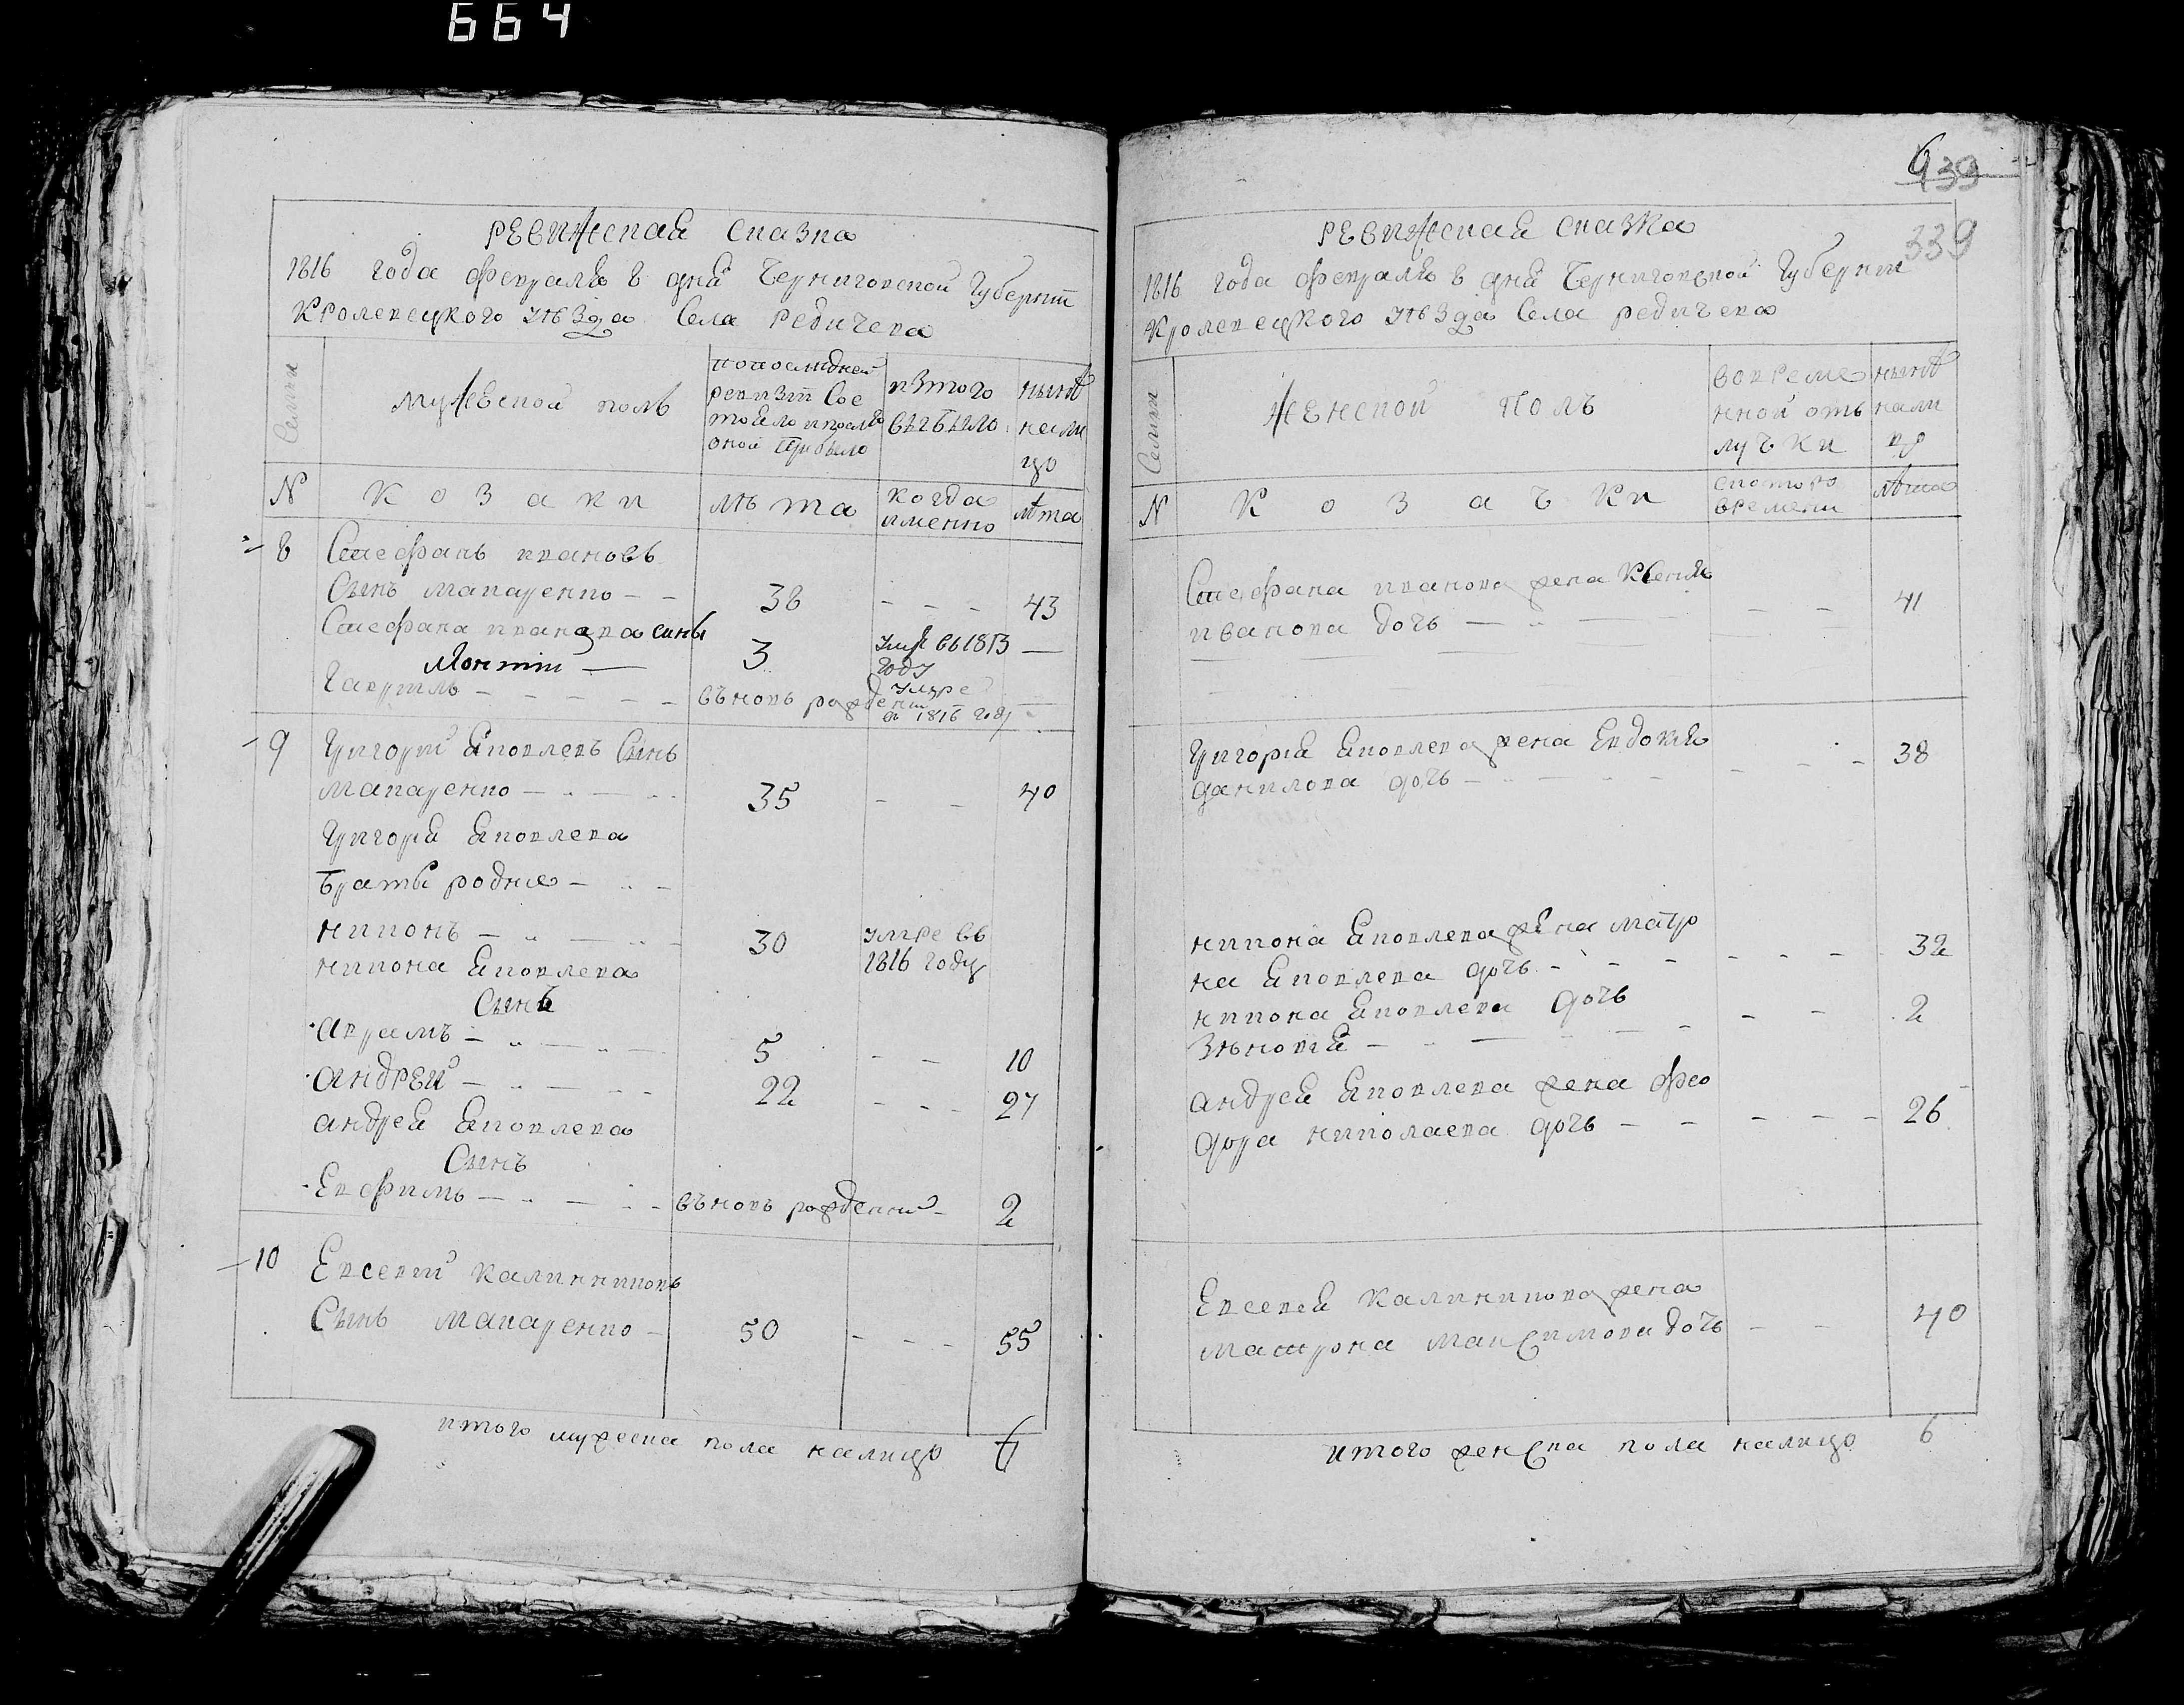 664
Ревижская сказка
1816 года февраля 8 дня Черниговской Губернии
Кролевецкого уѣзда Села Редичева
Семьи
мужеской полъ
попоследней ревизіи Состояло ипосле оной прибыло
изтого выбыло
нынѣ налицо
N
козаки
лѣта
когда именно
лѣта
8
Стефанъ ивановъ
Сынъ макаренко
38
43
Стефана иванова сины
Монтій
3
умре въ1813 году
Гавриилъ
въновь рожденій
умре в 1816 году
9
Григорій Яковлевъ Сынъ
макаренко
35
40
Григорія Яковлева
братья родніе
никонъ
30
умре въ 1816 году
никона Яковлева
Сынъ
аврамъ
5
10
андрей
22
27
андрея Яковлева
Сынъ
Евфимъ
въновъ рожденій
2
10
Евсевій калинниковъ
Сынъ макаренко
50
55
итого мужеска пола налицо
6
6
139
339
Ревижская сказка
1816 года февраля 8 дня Черниговской Губерніи
Кролевецкого уѣзда Села редичева
Семьи
женской полъ
вовременной отълучки
нынѣ налицо
N
козачки
скоторо времени
лѣта
Стефана иванова жена Ксенія
иванова дочь
41
Григорія Яковлева жена Евдокия
данилова дочь
38
никона Яковлева жена матро
на Яковлева дочь
32
никона Яковлева дочь
2
Зѣновия
андрея Яковлева жена фео
дора николаева дочь
26
Евсевия калиникова жена
матрона максимова дочь
40
итого женска пола налицо
6